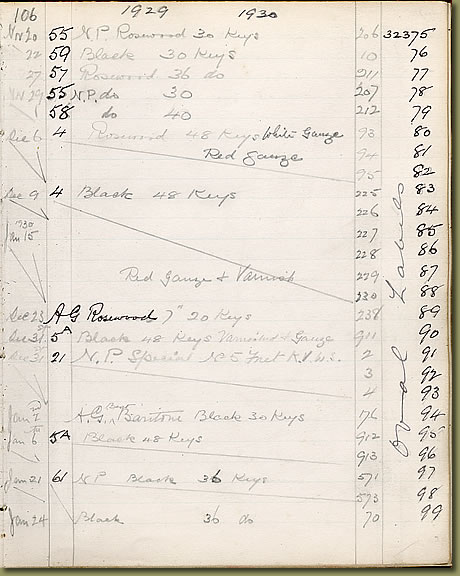 106 1929 1930
Nov 20 55 N.P. Rosewood 30 Keys 206 32375
22 59 Black 30 Keys 10 76
27 57 Rosewood 36 do 911 77
Nov 29 55 N.P. do 30 207 78
58 do 40 212 79
Dec 6 4 Rosewood 48 Keys White Gauze 93 80
Red Gauze 94 81
95 82
Dec 9 4 Black 48 Keys 225 83
226 84
1930 Jan 15 227 85
228 86
Red Gauze & Varnish 229 87
230 88
Dec 23 AG Rosewood 7" 20 Keys 238 89
Dec 31 5A Black 48 Keys Varnished & Gauze 911 90
Dec 31 21 N.P. Special No 5 Fret 2 91
3 92
4 93
Jan 1st A.G. Boys Baritone Black 30 Keys 176 94
Jan 6 5A Black 48 Keys 912 95
913 96
Jan 21 61 N.P. Black 36 Keys 571 97
573 98
Jan 24 Black 36 do 70 99
Oval Labels